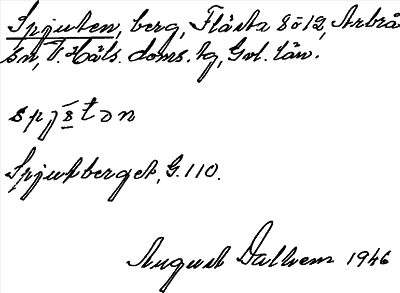 Spjuten, berg, Flästa 8ö12, Arbrå
sn, V. Häls. doms. tg, Gvl. län.
spjs̲̄tən
Spjutberget, G. 110.
August Dalhem 1946